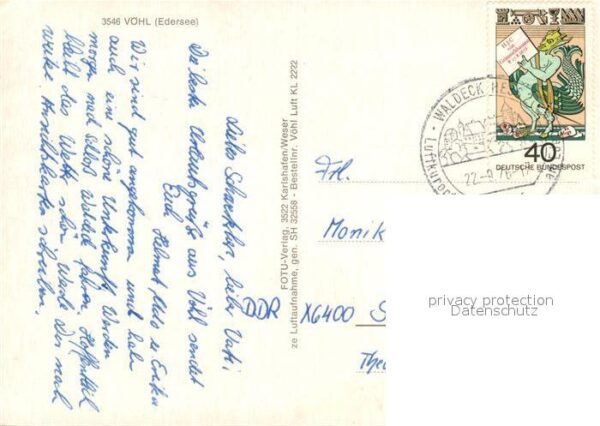 3546 VÖHL (Edersee)
Liebe Schwester, lieber Vati,
Die beste Urlaubsgrüße aus Vöhl sendet
Euch Helmut, Udo u. Erika
Wir sind gut angekommen und haben
auch eine schöne Unterkunft. Werden
morgen mal Schloß Waldeck fahren. Hoffentlich
hält das Wetter schön. Werde Dir noch
weitere Ansichtskarten schreiben.
FOTU-Verlag, 3522 Karlshafen/Weser
ze Luftaufnahme, gen. SH 32558 - Bestellnr. Vöhl Luft KL 2222
40
DEUTSCHE BUNDESPOST
WALDECK HE
22-9.76-1
Frl.
Monik
DDR X6400 S
The
privacy protection
Datenschutz